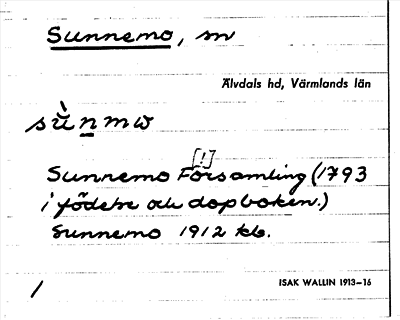 Sunnemo, sn
Älvdals hd, Värmlands län
sùnmω
[!]
Sunnemo Församling (1793
i födelse och dopboken.)
Sunnemo 1912 kb.
/
ISAK WALLIN 1913–16